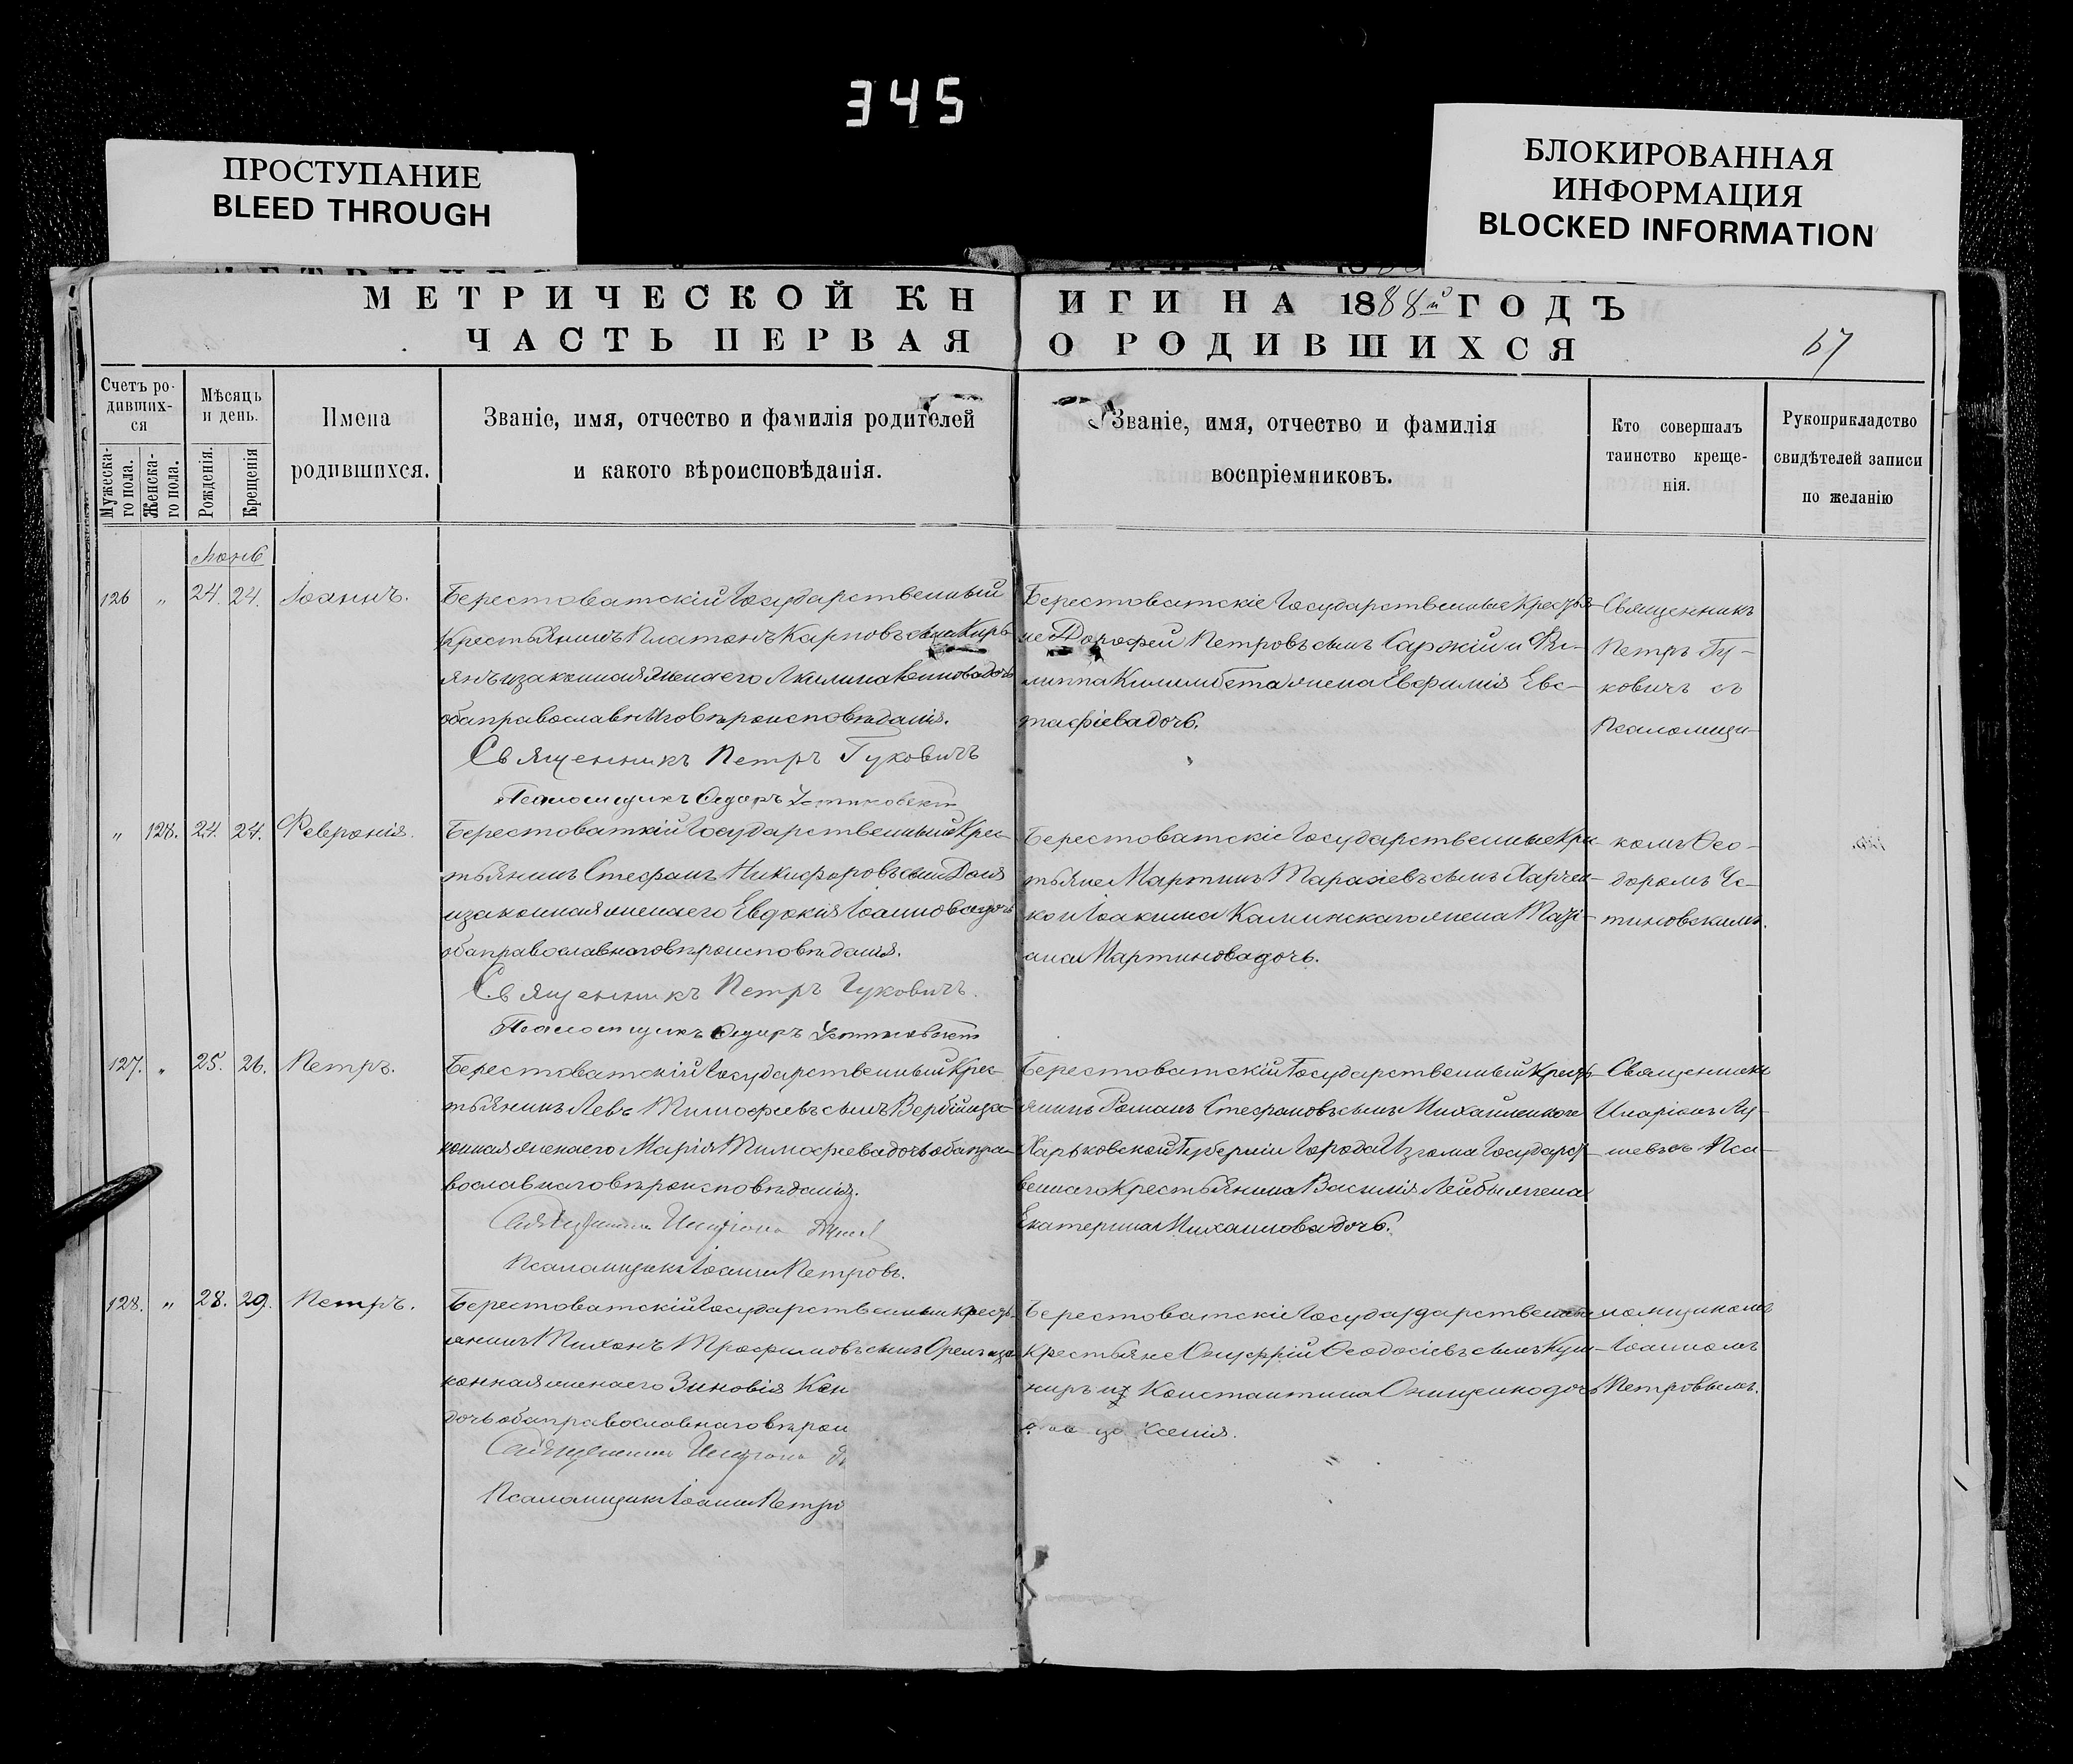 345
ПРОСТУПАНИЕ
BLEED THROUGH
БЛОКИРОВАННАЯ
ИНФОРМАЦИЯ
BLOCKED INFORMATION
МЕТРИЧЕСКОЙ КНИГИ НА 1888й ГОДЪ
ЧАСТЬ ПЕРВАЯ О РОДИВШИХСЯ
67
Счетъ ро-
дивших-
ся
Мужеска-
го пола.
Женска-
го пола.
Мѣсяцъ
и день.
Рожденія.
Крещенія
Имена
родившихся.
Званіе, имя, отчество и фамилія родителей
и какого вѣроисповѣданія.
Званіе, имя, отчество и фамилія
воспріемниковъ.
Кто совершалъ
таинство креще-
нія.
Рукоприкладство
свидѣтелей записи
по желанію
Іюнь
126 „ 24. 24. Іоаннъ.
Берестоватскій Государственный
Крестьянинъ Платонъ Карповъ сынъ Кирь-
янъ и законная жена его Акилина дочь
оба православнаго вѣроисповѣданія.
Священникъ Петръ Гуковичъ
Псаломщикъ Ѳедоръ Устиновскій
Берестоватскіе Государственные Крестья-
не Дорофей Петровъ сынъ Саржій и Фи-
липпа Килимбета жена Евфимія Евс-
тафіева дочь.
Священникъ
Петръ Гу-
ковичъ съ
Псаломщи-
„ 128. 24. 24. Февронія.
Берестоваткій Государственный Крес-
тьянинъ Стефанъ Никифоровъ сынъ Доля
и законная жена его Евдокія Іоаннова дочь
оба православнаго вѣроисповѣданія.
Священникъ Петръ Гуковичъ.
Псаломщикъ Ѳедоръ Устиновскій
Берестоватскіе Государственные Кре-
тьяне Мартинъ Тарасіевъ сынъ Харчен-
ко и Іоакима Калинскаго жена Таті-
ана Мартинова дочь.
комъ Ѳео-
доромъ Ус-
тиновскимъ.
127. „ 25. 26. Петръ.
Берестоватскій Государственный Крес-
тьянинъ Левъ Тимофѣевъ сынъ Вербій и за-
конная жена его Марія Тимофѣева дочь оба пра-
вославнаго вѣроисповѣданія.
Священникъ Иларіонъ
Псаломщикъ Іоаннъ Петровъ.
Берестоватскій Государственный Кресть-
янинъ Романъ Стефановъ сынъ Михайленко и
Харьковской Губерніи Города Изюма Государст-
веннаго Крестьянина Василія Лейбы жена
Екатерина Михаилова дочь.
Священникъ
Иларіонъ
съ Пса-
128. „ 28. 29. Петръ.
Берестоватскій Государственный Кресть-
янинъ Тихонъ Трофимовъ сынъ Орелъ и за-
конная жена его Зиновія Кон
дочь оба православнаго вѣрои
Священникъ Иларіонъ
Псаломщикъ Іоаннъ Петро
Берестоватскіе Государдарственные
Крестьяне Онуфрій Ѳеодосіевъ сынъ Куш-
ниръ и Константина Онищенко дочь
Ксенія.
ломщикомъ
Іоанномъ
Петровымъ.